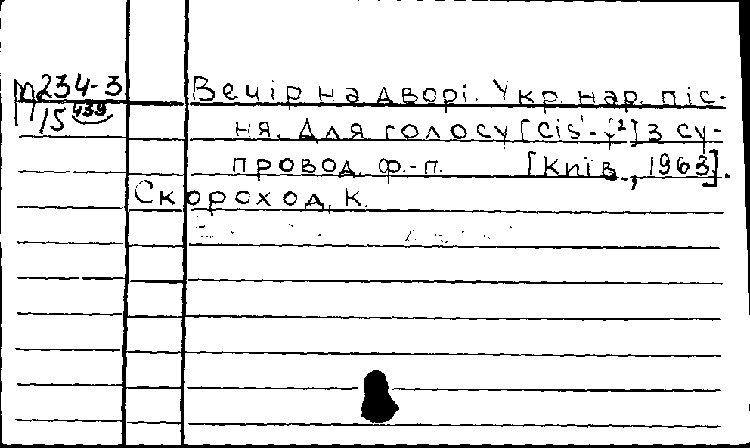 П234-3
15 439
Вечір на дворі. Укр. нар. піс-
ня. Для голосу [cis'- ²] з су-
провод. ф.-п. [Київ, 1963].
Скороход, К.